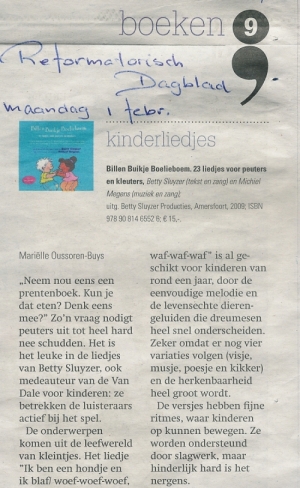 boeken 9
Reformatorisch
Dagblad
maandag 1 febr.
kinderliedjes
Billen Buikje Boelieboem. 23 liedjes voor peuters
en kleuters, Betty Sluyzer (tekst en zang) en Michiel
Megens (muziek en zang);
uitg. Betty Sluyzer Producties, Amersfoort, 2009; ISBN
978 90 814 6552 6; € 15,-.
Mariëlle Oussoren-Buys
„Neem nou eens een
prentenboek. Kun je
dat eten? Denk eens
mee?” Zo’n vraag nodigt
peuters uit tot heel hard
nee schudden. Het is
het leuke in de liedjes
van Betty Sluyzer, ook
medeauteur van de Van
Dale voor kinderen: ze
betrekken de luisteraars
actief bij het spel.
De onderwerpen
komen uit de leefwereld
van kleintjes. Het liedje
“Ik ben een hondje en
ik blaf/ woef-woef-woef,
waf-waf-waf” is al ge-
schikt voor kinderen van
rond een jaar, door de
eenvoudige melodie en
de levensechte dieren-
geluiden die dreumesen
heel snel onderscheiden.
Zeker omdat er nog vier
variaties volgen (visje,
musje, poesje en kikker)
en de herkenbaarheid
heel groot wordt.
De versjes hebben fijne
ritmes, waar kinderen
op kunnen bewegen. Ze
worden ondersteund
door slagwerk, maar
hinderlijk hard is het
nergens.